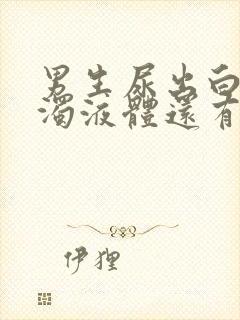 男生尿出白
濁液體還有
伊狸